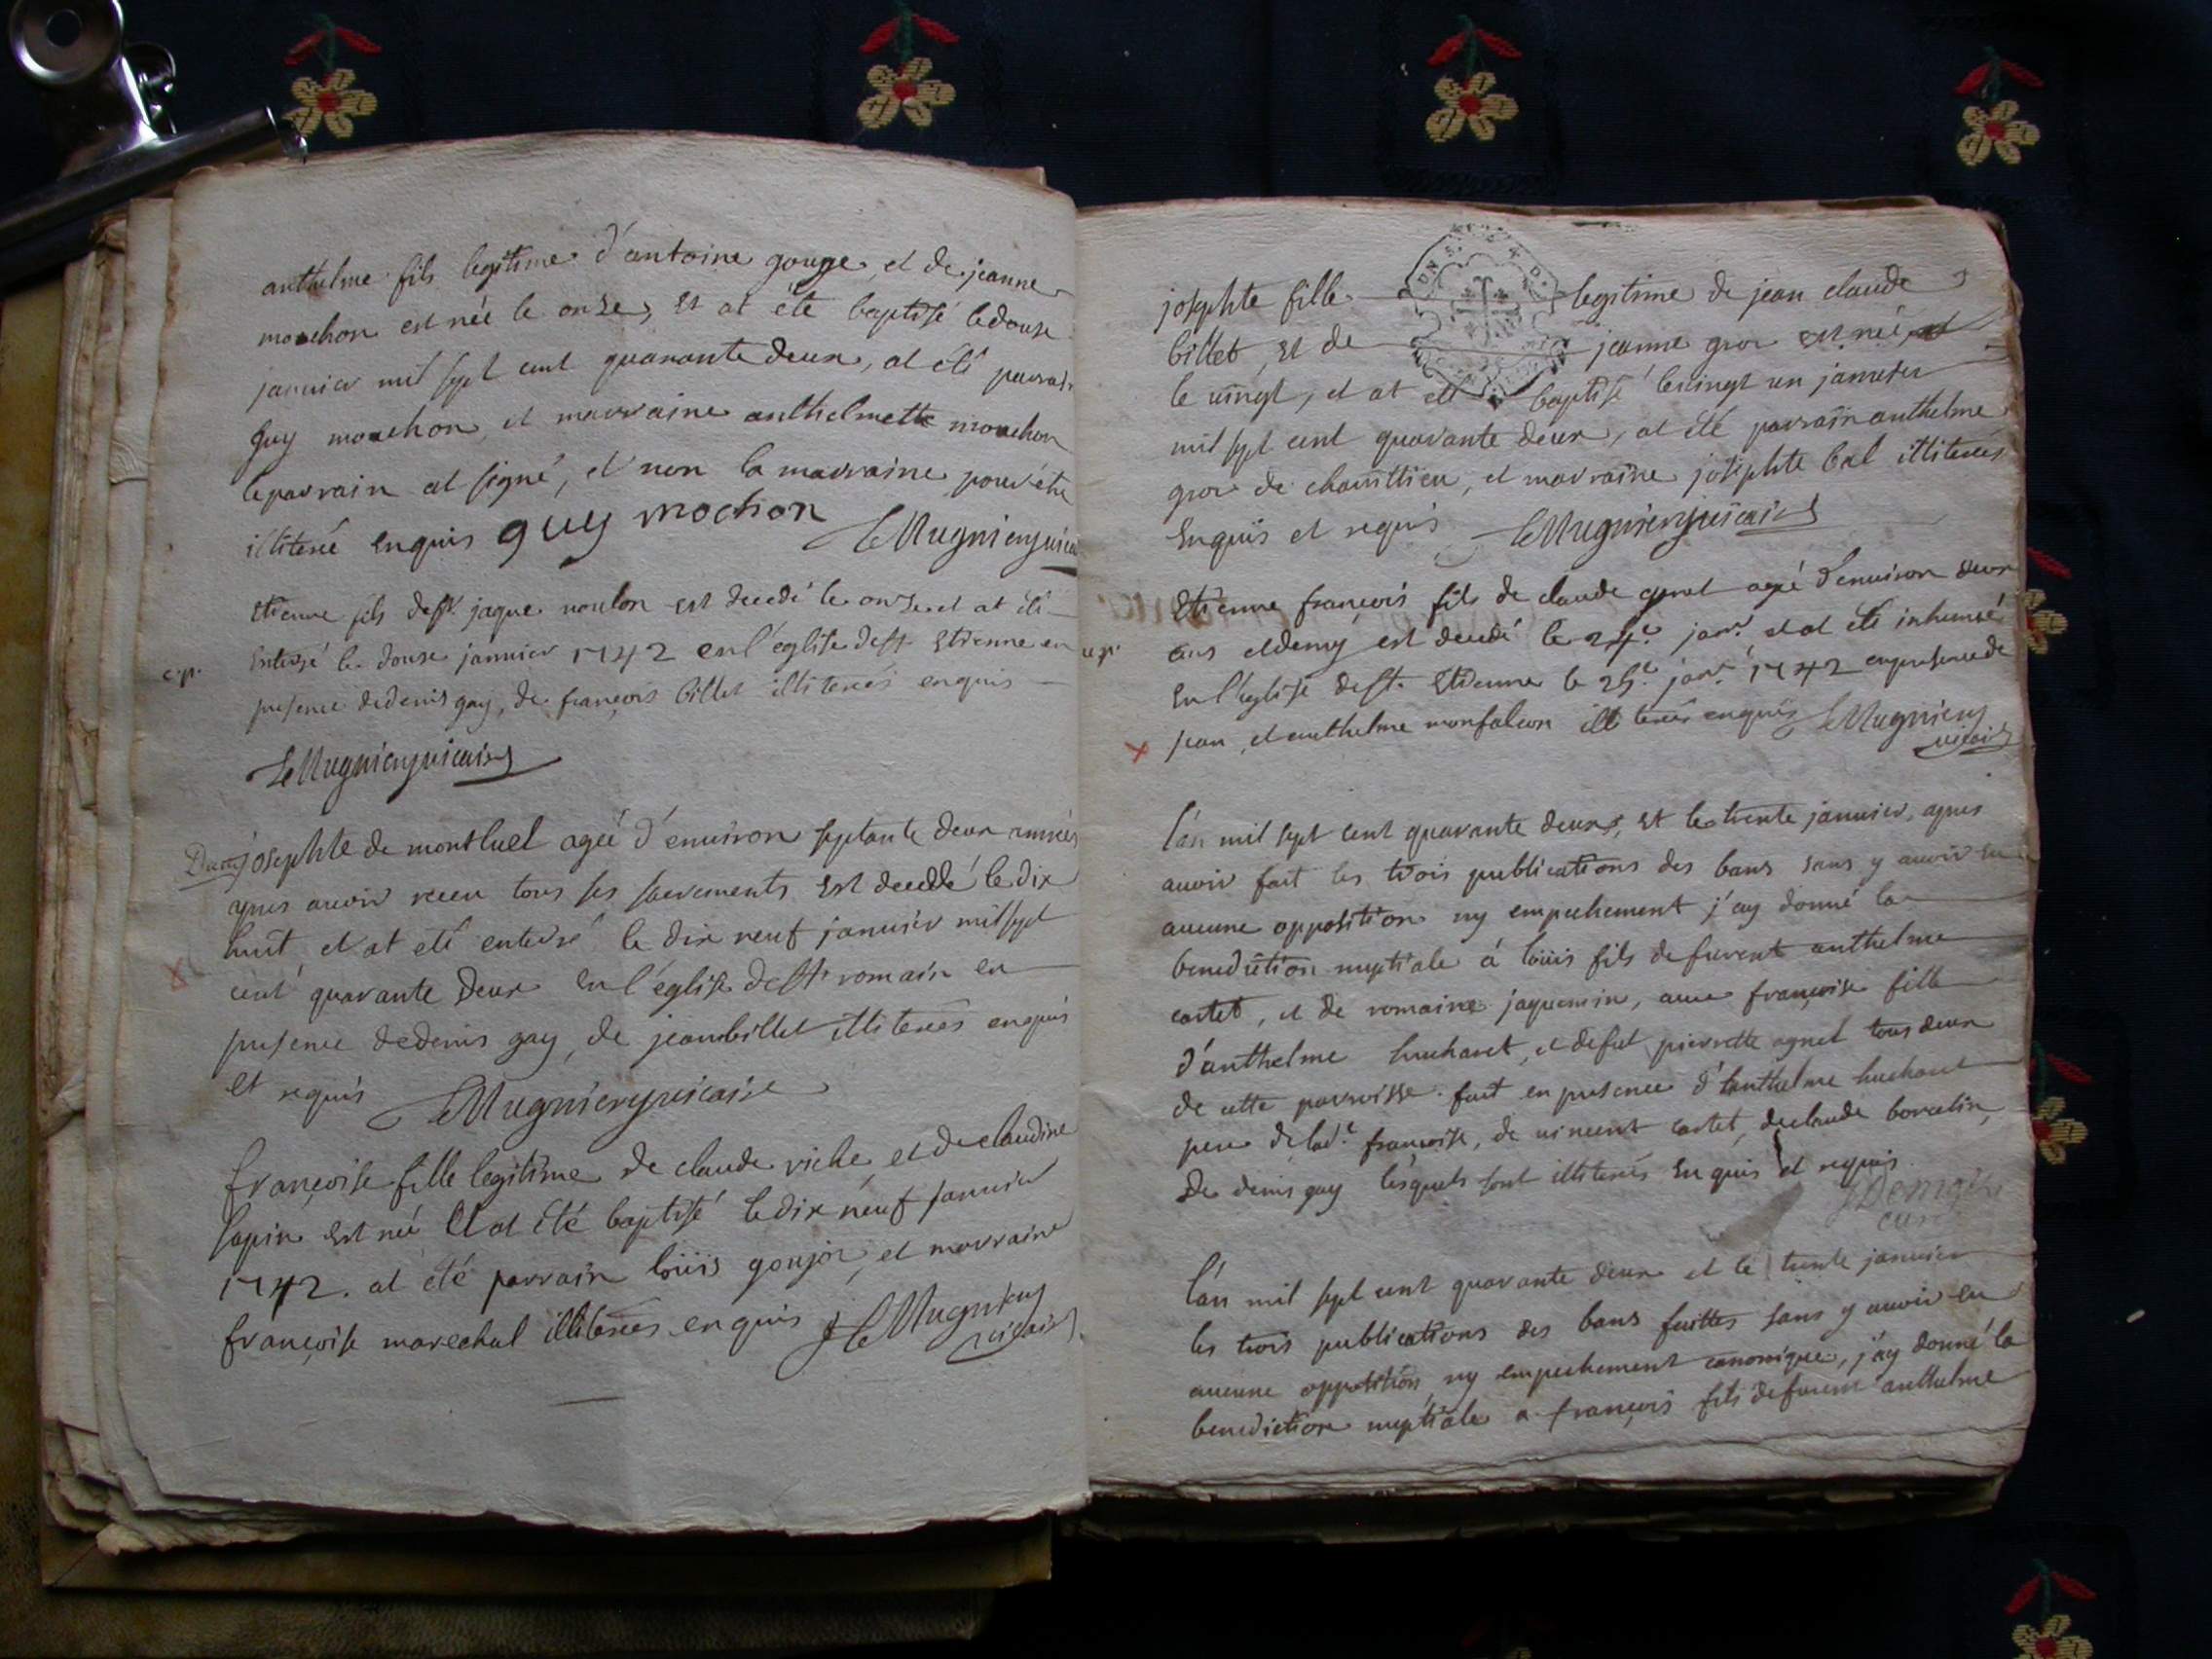 anthelme fils legitime d'antoine gouge, et de jeanne
mochon est née le onze, et at été baptisé le douse
janvier mil sept cent quarante deux, at été parrain
guy mochon, et marraine anthelmette mochon
le parrain at signé, et non la marraine pour être
illiteré enquis guy mochon LeMugnier vicaire
Etienne fils de ft jaque est decedé le onze et at été
c.p. enterré le douse janvier 1742 en l'eglise de st Etienne en
presence de denis gay, de françois billet illiterés enquis
LeMugnier vicaire
Dame josephte de montluel agée d'environ septante deux années
apres avoir receu tous ses sacrements est decedé le dix
huit et at eté enterré le dix neuf janvier mil sept
cent quarante deux en l'église de st romain en
presence de denis gay, de jean billet illiterés enquis
et requis LeMugnier vicaire
françoise fille legitime de claude riche et de claudine
sapin est née et at été baptisé le dix neuf janvier
1742. at été parrain loüis goujon, et marraine
françoise marechal illiterées enquis LeMugnier
vicaire
josephte fille legitime de jean claude
billet, et de jeanne gros est née
le vingt, et at été baptisé le vingt un janvier
mil sept cent quarante deux, at été parrain anthelme
gros de, et marraine josephte bal illiterés
enquis et requis LeMugnier vicaire
Etienne françois fils de claude agnel agé d'environ deux
c.p. ans et demy est decedé le 24e janr et at été inhumé
en l'eglise de st. Etienne le 25e janr 1742 en presence de
jean, et anthelme monfalcon illiterés enquis LeMugnier
vicaire
l'an mil sept cent quarante deux, et le trente janvier, apres
avoir fait les trois publications des bans sans y avoir eu
aucune opposition ny empechement j'ay donné la
benediction nuptiale á loüis fils de furent anthelme
cartet, et de romaine jaquemin, avec françoise fille
d'anthelme huchard, et de fut pierrette agnel tous deux
de cette parroisse. fait en presence d'anthelme huchard
pere de lad.e françoise, de vincent cartet, de claude borcelin,
de denis gay lesquels sont illiterés enquis et requis
curé
l'an mil sept cent quarante deux et le trente janvier
les trois publications des bans faittes sans y avoir eu
aucune opposition ny empechement canonique, j'ay donné la
benediction nuptiale a françois fils de furent anthelme